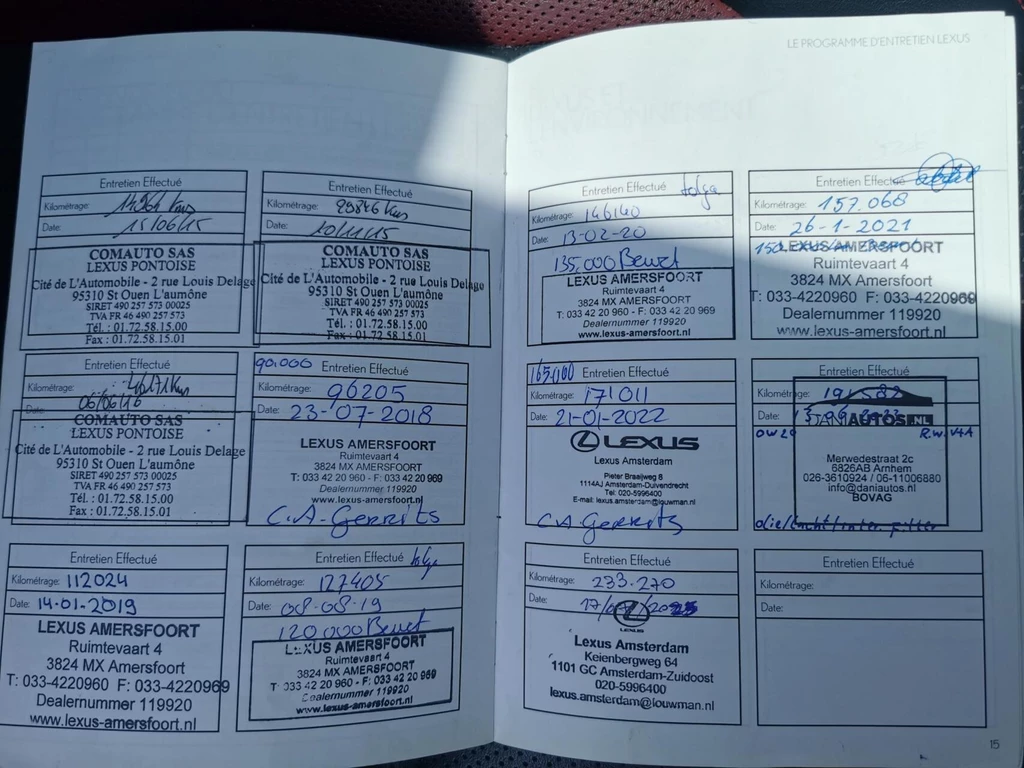 LE PROGRAMME D'ENTRETIEN LEXUS
Entretien Effectué
Kilométrage:
Date: 15/06/15
COMAUTO SAS
LEXUS PONTOISE
Cité de L'Automobile - 2 rue Louis Delage
95310 St Ouen L'aumône
SIRET 490 257 573 00025
TVA FR 46 490 257 573
Tél. : 01.72.58.15.00
Fax : 01.72.58.15.01
Entretien Effectué
Kilométrage: 29846 Km
Date: 10/11/15
COMAUTO SAS
LEXUS PONTOISE
Cité de L'Automobile - 2 rue Louis Delage
95310 St Ouen L'aumône
SIRET 490 257 573 00025
TVA FR 46 490 257 573
Tél. : 01.72.58.15.00
Fax : 01.72.58.15.01
Entretien Effectué
Kilométrage:
Date: 06/06/16
COMAUTO SAS
LEXUS PONTOISE
Cité de L'Automobile - 2 rue Louis Delage
95310 St Ouen L'aumône
SIRET 490 257 573 00025
TVA FR 46 490 257 573
Tél. : 01.72.58.15.00
Fax : 01.72.58.15.01
90.000 Entretien Effectué
Kilométrage: 96205
Date: 23-07-2018
LEXUS AMERSFOORT
Ruimtevaart 4
3824 MX Amersfoort
T: 033 42 20 960 - F: 033 42 20 969
Dealernummer 119920
www.lexus-amersfoort.nl
C.A-Gerrits
Entretien Effectué
Kilométrage: 112024
Date: 14-01-2019
LEXUS AMERSFOORT
Ruimtevaart 4
3824 MX Amersfoort
T: 033-4220960 F: 033-4220969
Dealernummer 119920
www.lexus-amersfoort.nl
Entretien Effectué
Kilométrage: 127405
Date: 08-08-19
120.000 Beurt
LEXUS AMERSFOORT
Ruimtevaart 4
3824 MX Amersfoort
T: 033 42 20 960 - F: 033 42 20 969
Dealernummer 119920
www.lexus-amersfoort.nl
Entretien Effectué tolga
Kilométrage: 146140
Date: 13-02-20
135.000 Beurt
LEXUS AMERSFOORT
Ruimtevaart 4
3824 MX Amersfoort
T: 033 42 20 960 - F: 033 42 20 969
Dealernummer 119920
www.lexus-amersfoort.nl
Entretien Effectué
Kilométrage: 157.068
Date: 26-1-2021
LEXUS AMERSFOORT
Ruimtevaart 4
3824 MX Amersfoort
T: 033-4220960 F: 033-4220969
Dealernummer 119920
www.lexus-amersfoort.nl
165.000 Entretien Effectué
Kilométrage: 171011
Date: 21-01-2022
LEXUS
Lexus Amsterdam
Pieter Braaijweg 8
1114AJ Amsterdam-Duivendrecht
Tel: 020-5996400
E-mail: lexus.amsterdam@louwman.nl
C A Gerrits
Entretien Effectué
Kilométrage: 191588
Date:
DANIAUTOS.NL
OW20 R.W.V4A
Merwedestraat 2c
6826AB Arnhem
026-3610924 / 06-11006880
info@daniautos.nl
BOVAG
olie/Lucht/inter. filter
Entretien Effectué
Kilométrage: 233.270
Date:
LEXUS
Lexus Amsterdam
Keienbergweg 64
1101 GC Amsterdam-Zuidoost
020-5996400
lexus.amsterdam@louwman.nl
Entretien Effectué
Kilométrage:
Date:
15